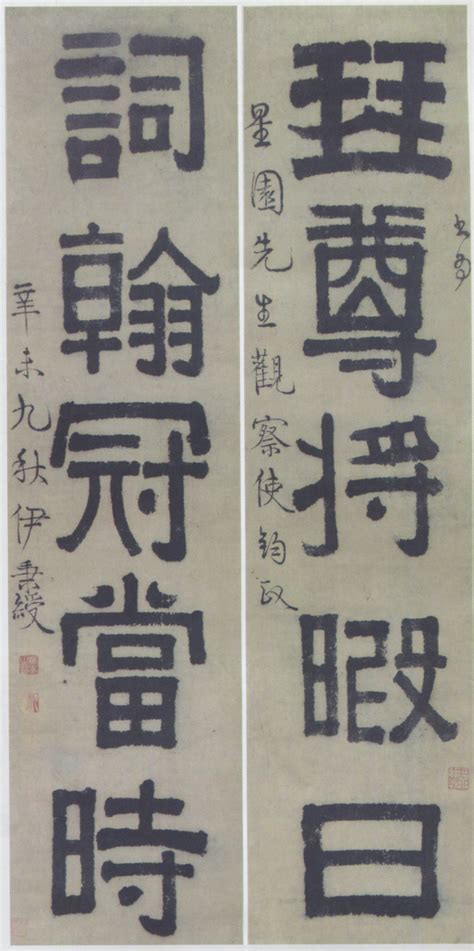 書為
珡尊将暇日
星園先生觀察使鈞政
詞翰冠當時
辛未九秋伊秉綬